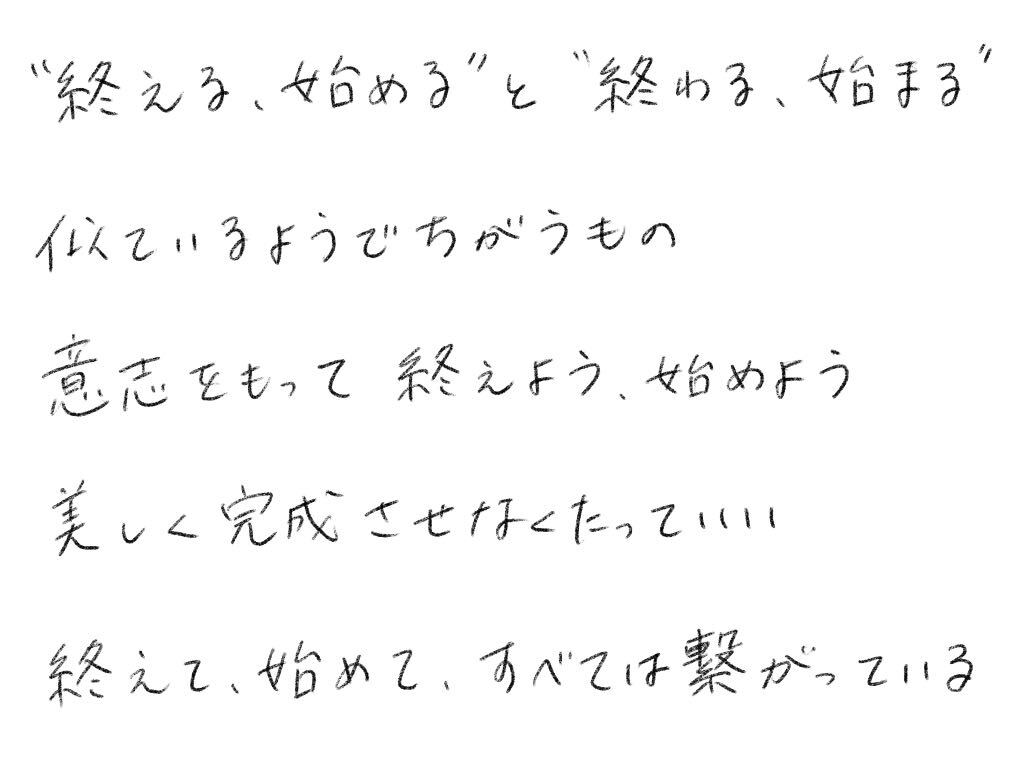 “終える、始める”と“終わる、始まる”
似ているようでちがうもの
意志をもって 終えよう、始めよう
美しく完成させなくたっていい
終えて、始めて、すべては繋がっている